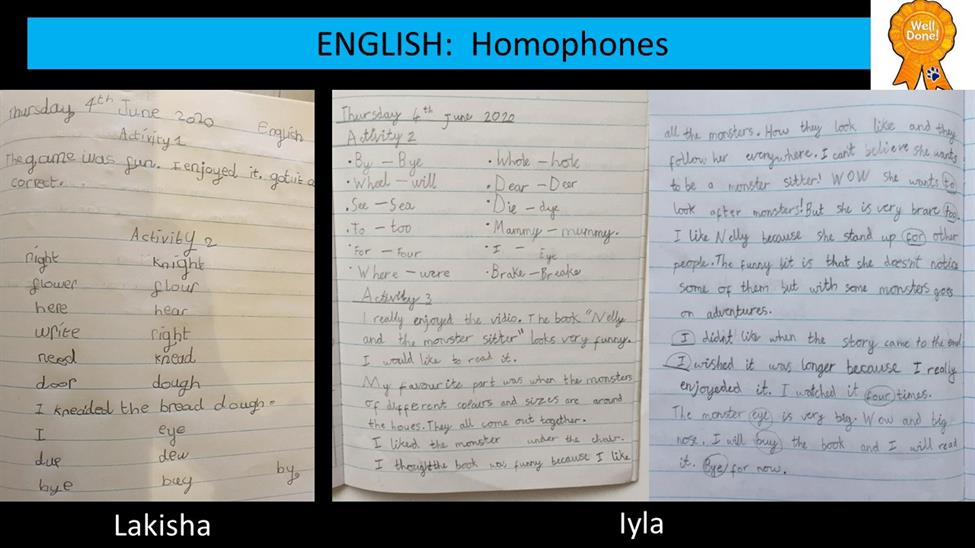 ENGLISH: Homophones
Well
Done!
Thursday 4th June 2020
English
Activity 1
The game was fun. I enjoyed it. got it
correct.
Activity 2
night knight
flower flour
here hear
write right
need knead
door dough
I kneaided the bread dough.
I eye
due dew
bye buy by
Thursday 4th June 2020
Activity 2
• By – Bye • Whole – hole
• Wheel – will • Dear – Deer
• See – Sea • Die – dye
• To – too • Mammy – mummy.
• For – Four • I – Eye
• Where – were • Brake – Breake
Activity 3
I really enjoyed the vidio. The book "Nelly
and the monster sitter" looks very funny.
I would like to read it.
My favourite part was when the monsters
of different colours and sizes are around
the houes. They all come out together.
I liked the monster under the chair.
I thought the book was funny because I like
all the monsters. How they look like and they
follow her everywhere. I can't believe she wants
to be a monster sitter! WOW she wants to
look after monsters! But she is very brave too.
I like Nelly because she stand up for other
people. The funny bit is that she doesn't notice
some of them but with some monsters goes
on adventures.
I didn't like when the story came to the end.
I wished it was longer because I really
enjoyeded it. I watched it four times.
The monster eye is very big. Wow and big
nose. I will buy the book and I will read
it. Bye for now.
Lakisha
Iyla